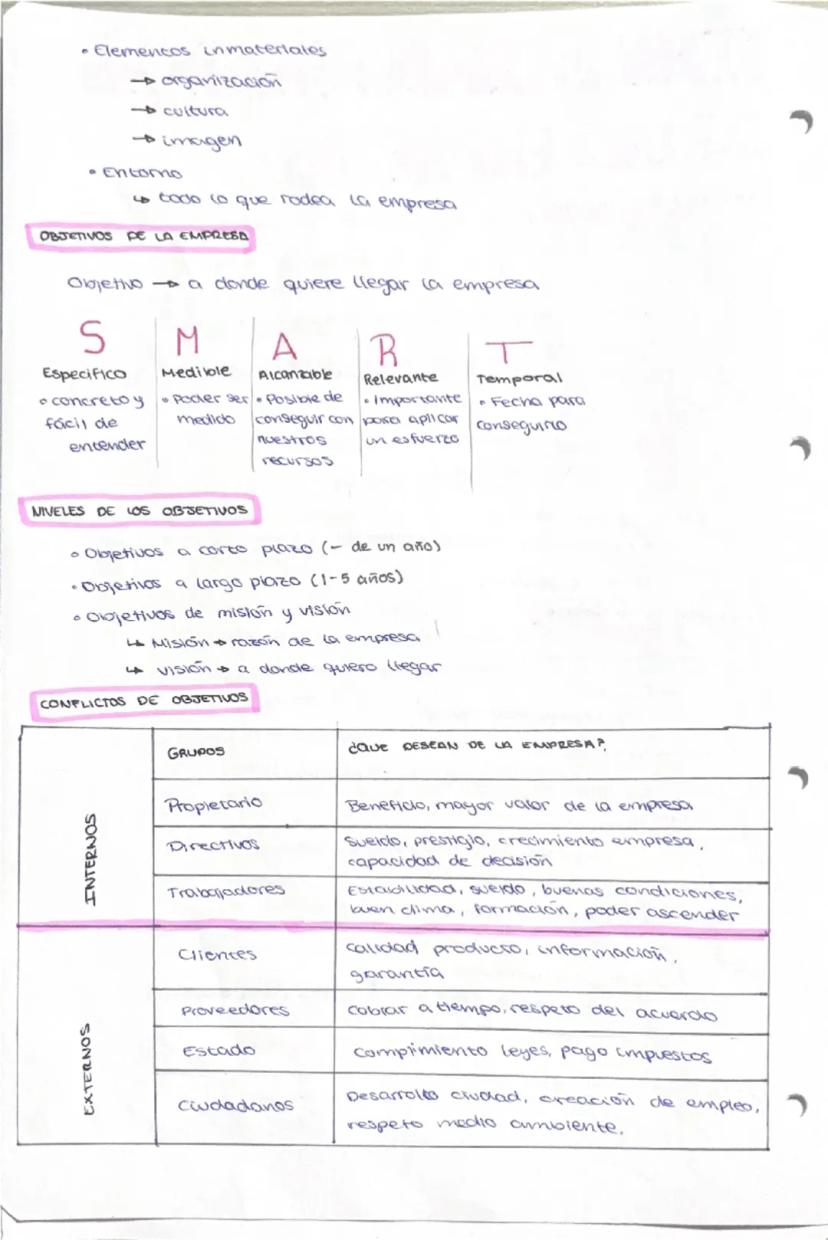 • Elementos inmateriales
→ organización
→ cultura
→ imagen
• Entorno
↳ todo lo que rodea la empresa
OBJETIVOS DE LA EMPRESA
Objetivo → a donde quiere llegar la empresa
S M A R T
Específico Medible Alcanzable Relevante Temporal
• concreto y • Poder ser • Posible de • Importante • Fecha para
fácil de medido conseguir con para aplicar conseguirlo
entender nuestros un esfuerzo
recursos
NIVELES DE LOS OBJETIVOS
• Objetivos a corto plazo (- de un año)
• Objetivos a largo plazo (1-5 años)
• Objetivos de misión y visión
↳ Misión → razón de la empresa
↳ visión → a donde quiero llegar
CONFLICTOS DE OBJETIVOS
INTERNOS
GRUPOS ¿QUE DESEAN DE LA EMPRESA?
Propietario Beneficio, mayor valor de la empresa
Directivos sueldo, prestigio, crecimiento empresa,
capacidad de decisión
Trabajadores Estabilidad, sueldo, buenas condiciones,
buen clima, formación, poder ascender
EXTERNOS
Clientes calidad producto, información,
garantía
Proveedores cobrar a tiempo, respeto del acuerdo
Estado comprimiento leyes, pago impuestos
Ciudadanos Desarrollo ciudad, creación de empleo,
respeto medio ambiente.